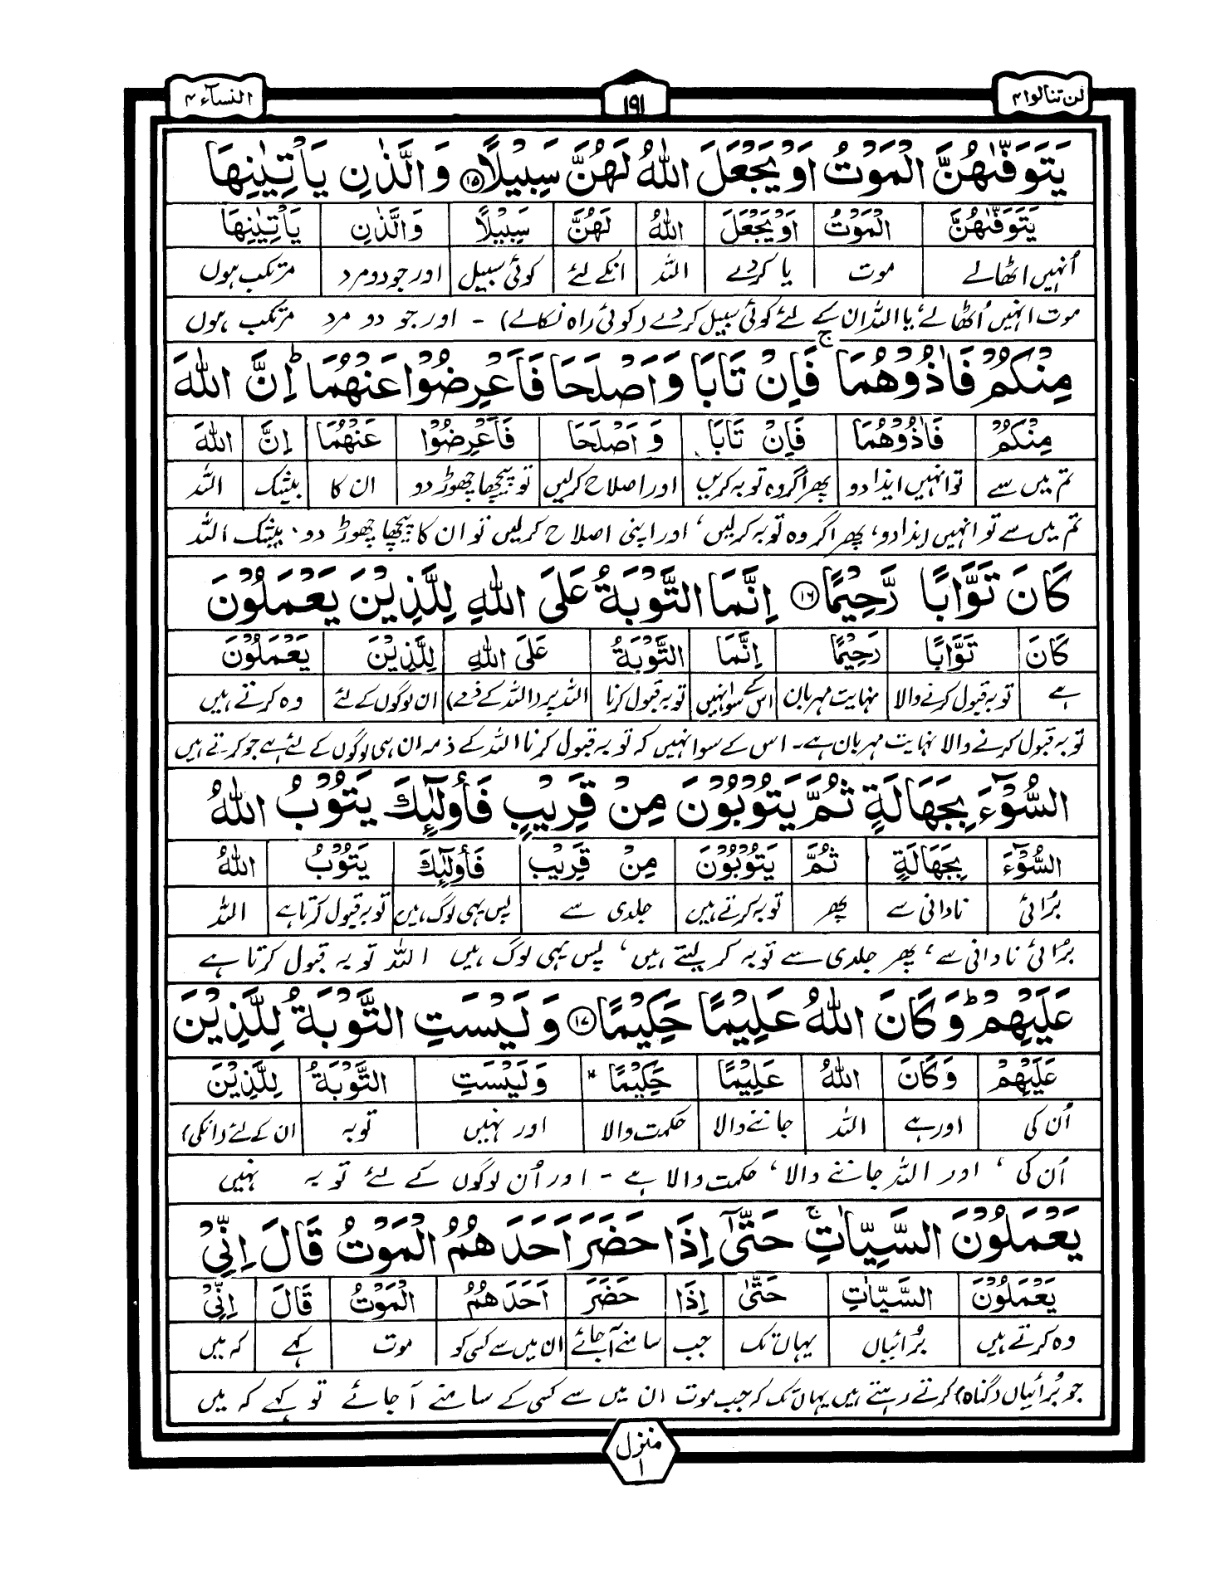 لن تنالوا ۴
۱۹۱
النسآء ۴
يَتَوَفّٰىهُنَّ الْمَوْتُ اَوْ يَجْعَلَ اللّٰهُ لَهُنَّ سَبِيْلًا ۝۱۵ وَ الَّذٰنِ يَاْتِيٰنِهَا
يَتَوَفّٰىهُنَّ الْمَوْتُ اَوْ يَجْعَلَ اللّٰهُ لَهُنَّ سَبِيْلًا وَالَّذٰنِ يَاْتِيٰنِهَا
اُنہیں اٹھالے موت یا کردے اللہ انکے لئے کوئی سبیل اور جو دو مرد مرتکب ہوں
موت انہیں اُٹھالے، یا اللہ ان کے لئے کوئی سبیل کر دے (کوئی راہ نکالے) ۔ اور جو دو مرد مرتکب ہوں
مِنْكُمْ فَاٰذُوْهُمَا ۚ فَاِنْ تَابَا وَ اَصْلَحَا فَاَعْرِضُوْا عَنْهُمَا ؕ اِنَّ اللّٰهَ
مِنْكُمْ فَاٰذُوْهُمَا فَاِنْ تَابَا وَ اَصْلَحَا فَاَعْرِضُوْا عَنْهُمَا اِنَّ اللّٰهَ
تم میں سے تو انہیں ایذا دو پھر اگر وہ توبہ کریں اور اصلاح کرلیں تو پیچھا چھوڑ دو ان کا بیشک اللہ
تم میں سے تو انہیں ایذا دو، پھر اگر وہ توبہ کرلیں، اور اپنی اصلاح کرلیں تو ان کا پیچھا چھوڑ دو، بیشک اللہ
كَانَ تَوَّابًا رَّحِيْمًا ۝۱۶ اِنَّمَا التَّوْبَةُ عَلَى اللّٰهِ لِلَّذِيْنَ يَعْمَلُوْنَ
كَانَ تَوَّابًا رَحِيْمًا اِنَّمَا التَّوْبَةُ عَلَى اللّٰهِ لِلَّذِيْنَ يَعْمَلُوْنَ
ہے توبہ قبول کرنے والا نہایت مہربان اس کے سوا نہیں توبہ قبول کرنا اللہ پر (اللہ کے ذمے) ان لوگوں کے لئے وہ کرتے ہیں
توبہ قبول کرنے والا نہایت مہربان ہے۔ اس کے سوا نہیں کہ توبہ قبول کرنا اللہ کے ذمہ ان ہی لوگوں کے لئے ہے جو کرتے ہیں
السُّوْٓءَ بِجَهَالَةٍ ثُمَّ يَتُوْبُوْنَ مِنْ قَرِيْبٍ فَاُولٰٓئِكَ يَتُوْبُ اللّٰهُ
السُّوْٓءَ بِجَهَالَةٍ ثُمَّ يَتُوْبُوْنَ مِنْ قَرِيْبٍ فَاُولٰٓئِكَ يَتُوْبُ اللّٰهُ
بُرائی نادانی سے پھر توبہ کرتے ہیں جلدی سے پس یہی لوگ ہیں توبہ قبول کرتا ہے اللہ
بُرائی نادانی سے، پھر جلدی سے توبہ کر لیتے ہیں، پس یہی لوگ ہیں اللہ توبہ قبول کرتا ہے
عَلَيْهِمْ ؕ وَ كَانَ اللّٰهُ عَلِيْمًا حَكِيْمًا ۝۱۷ وَ لَيْسَتِ التَّوْبَةُ لِلَّذِيْنَ
عَلَيْهِمْ وَكَانَ اللّٰهُ عَلِيْمًا حَكِيْمًا وَ لَيْسَتِ التَّوْبَةُ لِلَّذِيْنَ
اُن کی اور ہے اللہ جاننے والا حکمت والا اور نہیں توبہ ان کے لئے (انکی)
اُن کی، اور اللہ جاننے والا، حکمت والا ہے ۔ اور اُن لوگوں کے لئے توبہ نہیں
يَعْمَلُوْنَ السَّيِّاٰتِ ۚ حَتّٰٓى اِذَا حَضَرَ اَحَدَهُمُ الْمَوْتُ قَالَ اِنِّىْ
يَعْمَلُوْنَ السَّيِّاٰتِ حَتّٰى اِذَا حَضَرَ اَحَدَهُمُ الْمَوْتُ قَالَ اِنِّىْ
وہ کرتے ہیں بُرائیاں یہاں تک جب سامنے آجائے ان میں سے کسی کو موت کہے کہ میں
جو بُرائیاں (گناہ) کرتے رہتے ہیں یہاں تک کہ جب موت ان میں سے کسی کے سامنے آ جائے تو کہے کہ میں
منزل
۱